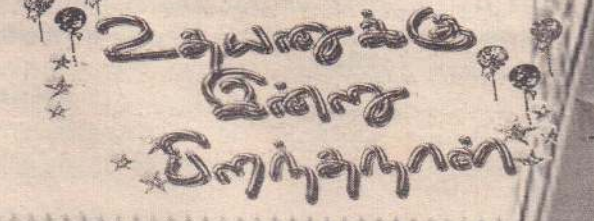 உதயனுக்கு
இன்று
பிறந்தநாள்